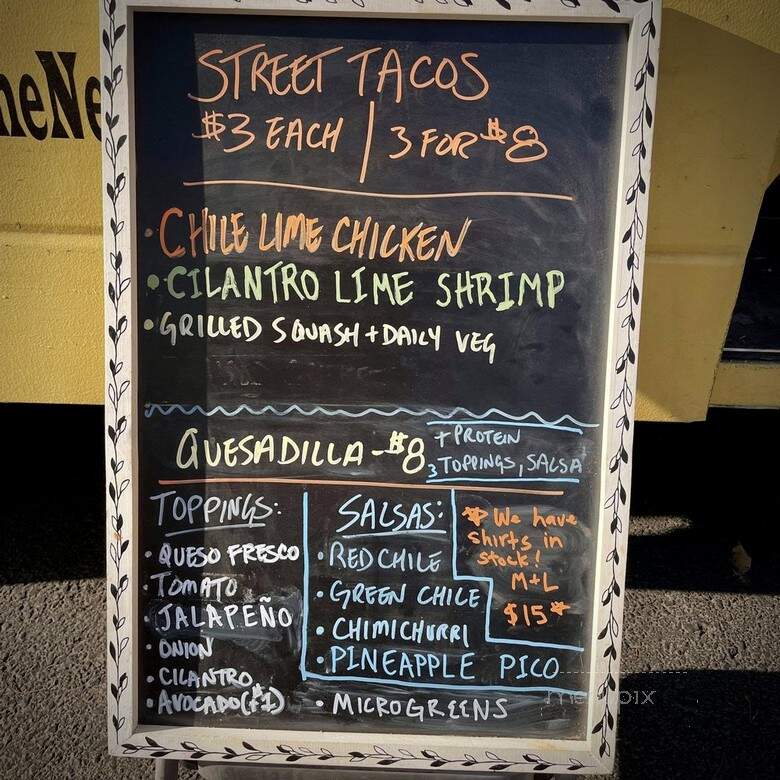 STREET TACOS
$3 EACH | 3 FOR $8
• CHILE LIME CHICKEN
• CILANTRO LIME SHRIMP
• GRILLED SQUASH + DAILY VEG
QUESADILLA - $8
+ PROTEIN
3 TOPPINGS, SALSA
TOPPINGS:
• QUESO FRESCO
• TOMATO
• JALAPEÑO
• ONION
• CILANTRO
• AVOCADO (+$1)
SALSAS:
• RED CHILE
• GREEN CHILE
• CHIMICHURRI
• PINEAPPLE PICO
• MICROGREENS
* We have
shirts in
stock!
M+L
$15 *